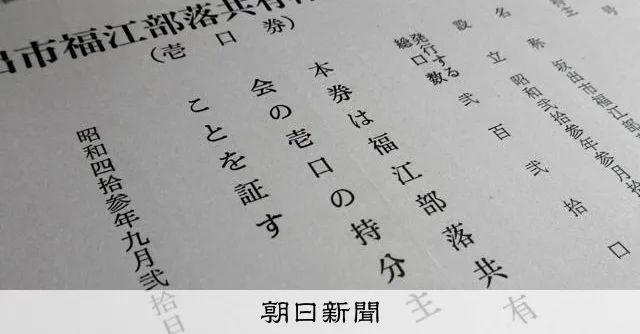 出市福江部落共有
(壱口券)
名称 坂出市福江部
設立 昭和弐拾参年参月拾
発行する総口数 弐百弐拾口
本券は福江部落共有
会の壱口の持分
ことを証す
昭和四拾参年九月弐拾日
主
朝日新聞